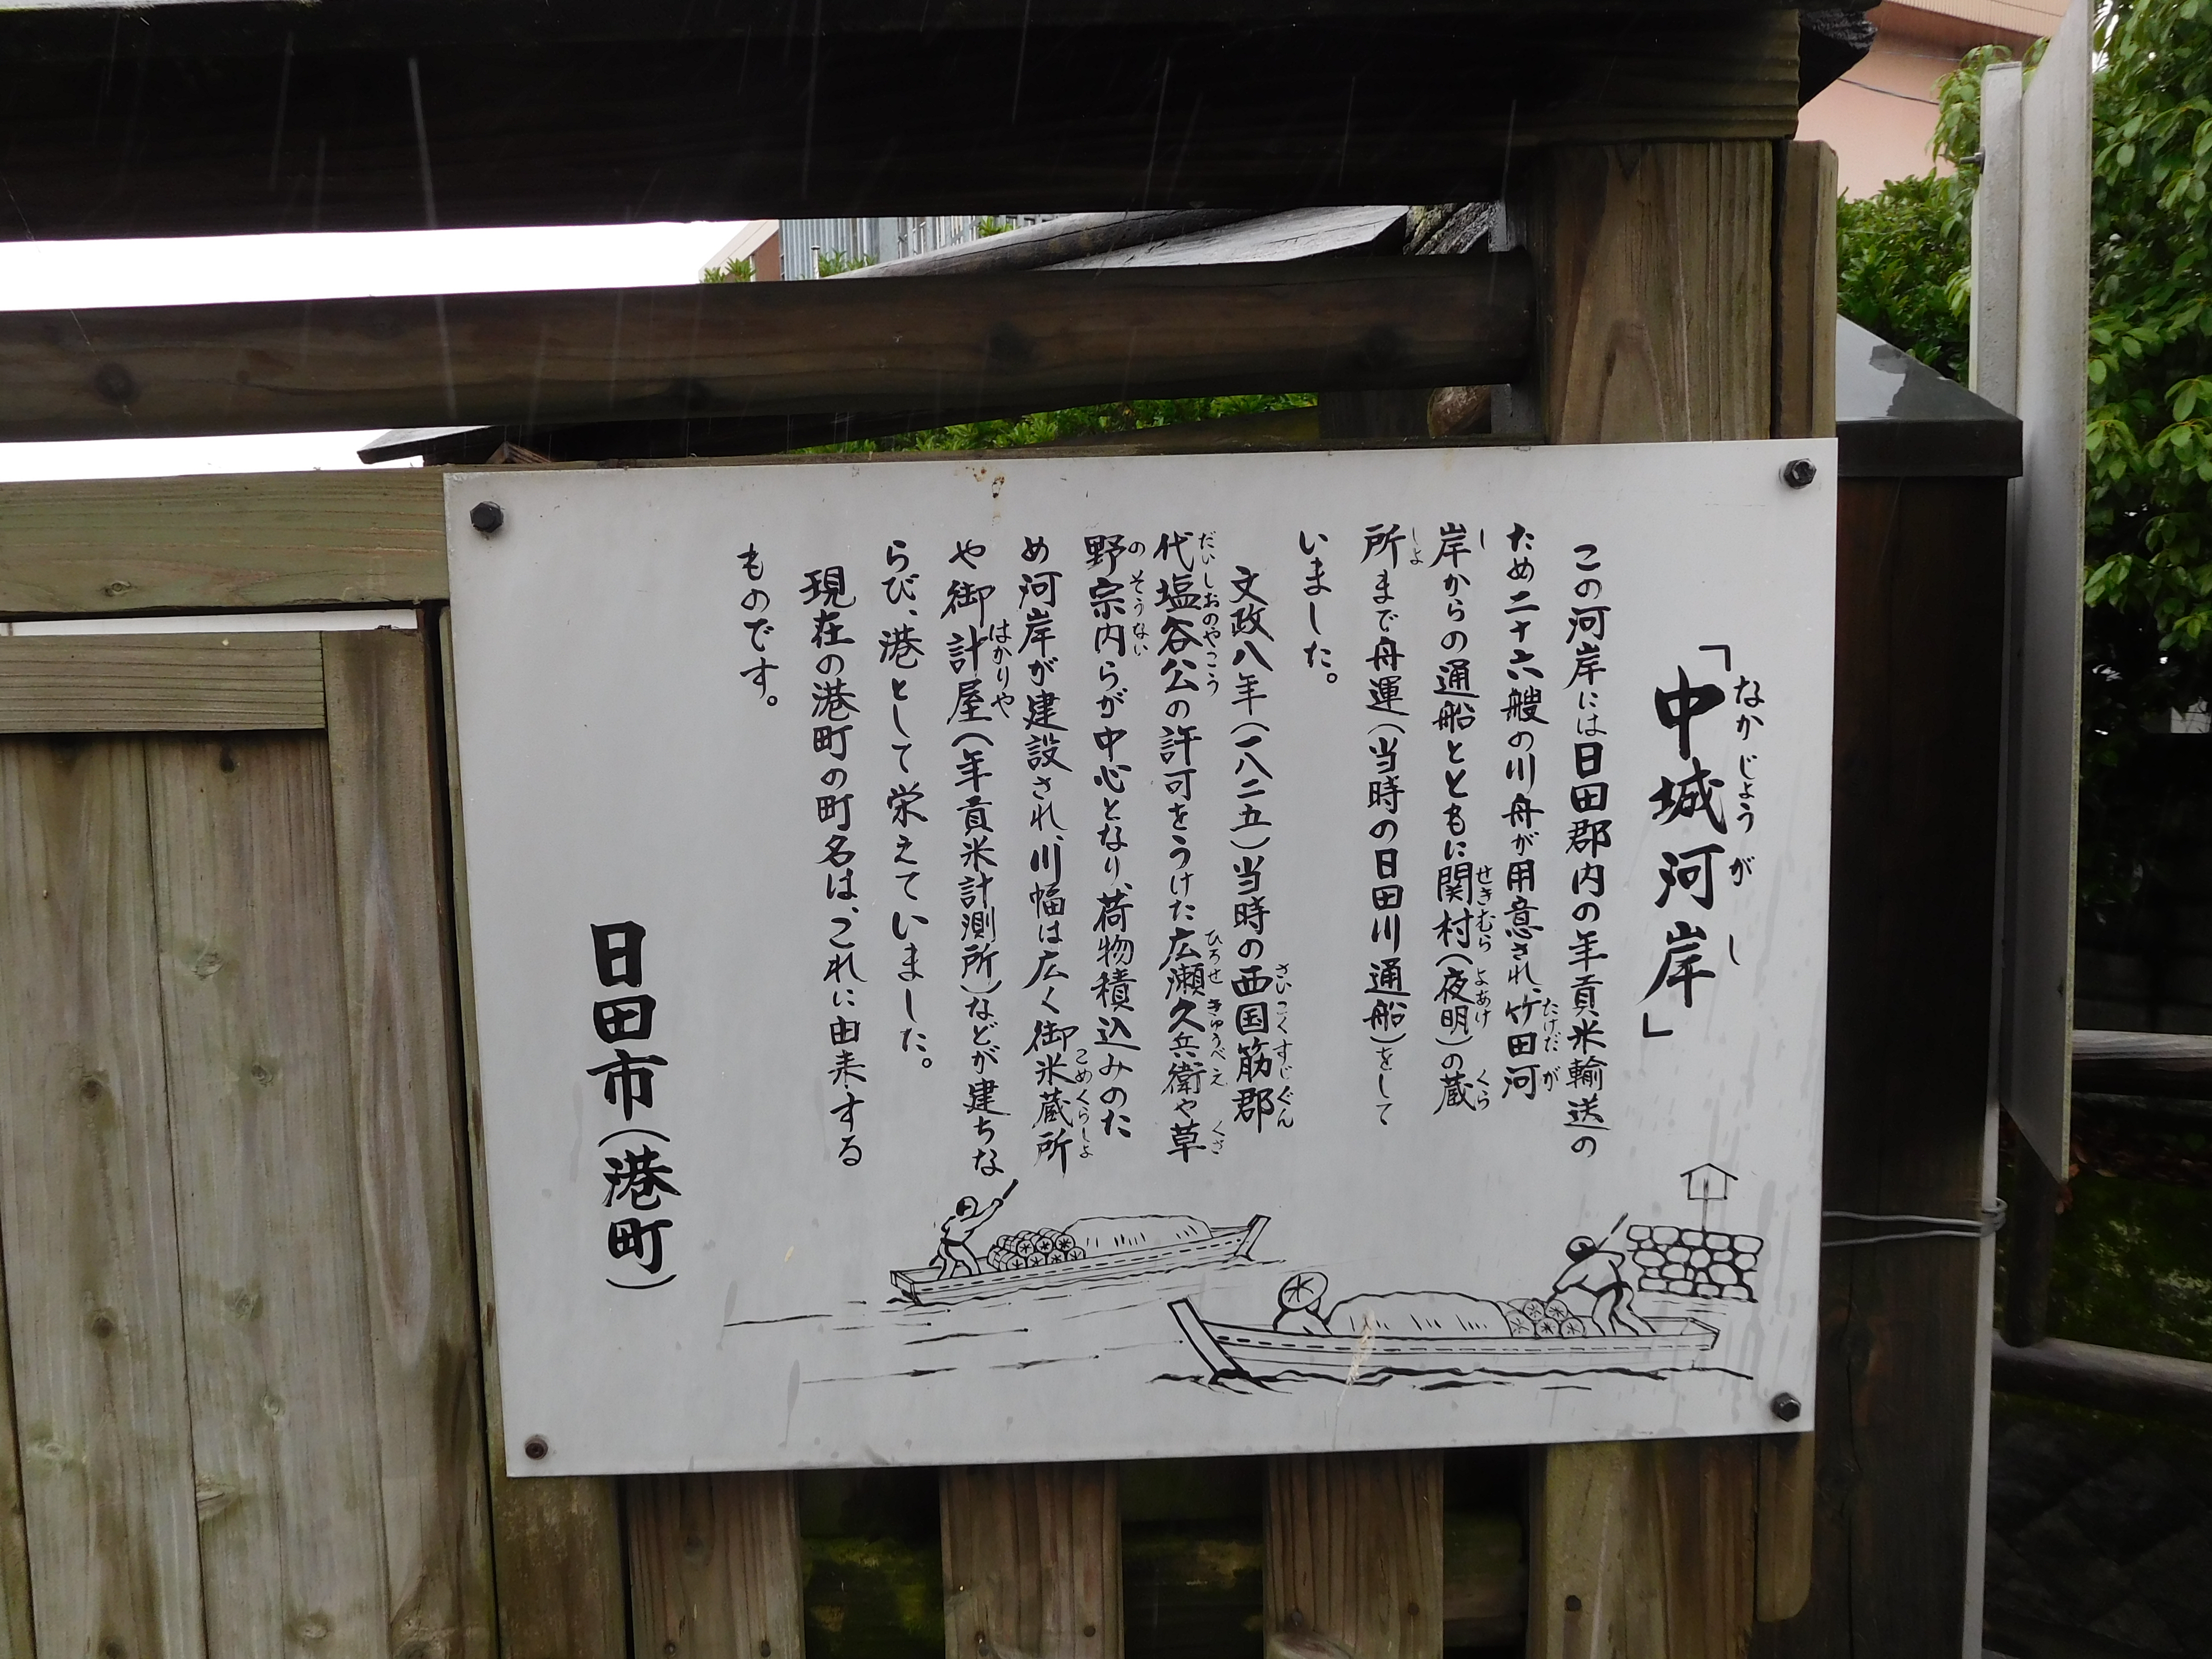 「中城河岸」
なかじょうがし
この河岸には日田郡内の年貢米輸送の
ため二十六艘の川舟が用意され、竹田河
たけだが
岸からの通船とともに関村(夜明)の蔵
し せきむら よあけ くら
所まで舟運(当時の日田川通船)をして
しょ
いました。
文政八年(一八二五)当時の西国筋郡
さいこくすじぐん
代塩谷公の許可をうけた広瀬久兵衛や草
だいしおのやこう ひろせ きゅうべえ くさ
野宗内らが中心となり、荷物積込みのた
の そうない
め河岸が建設され、川幅は広く御米蔵所
こめくらしょ
や御計屋(年貢米計測所)などが建ちな
はかりや
らび、港として栄えていました。
現在の港町の町名は、これに由来する
ものです。
日田市(港町)